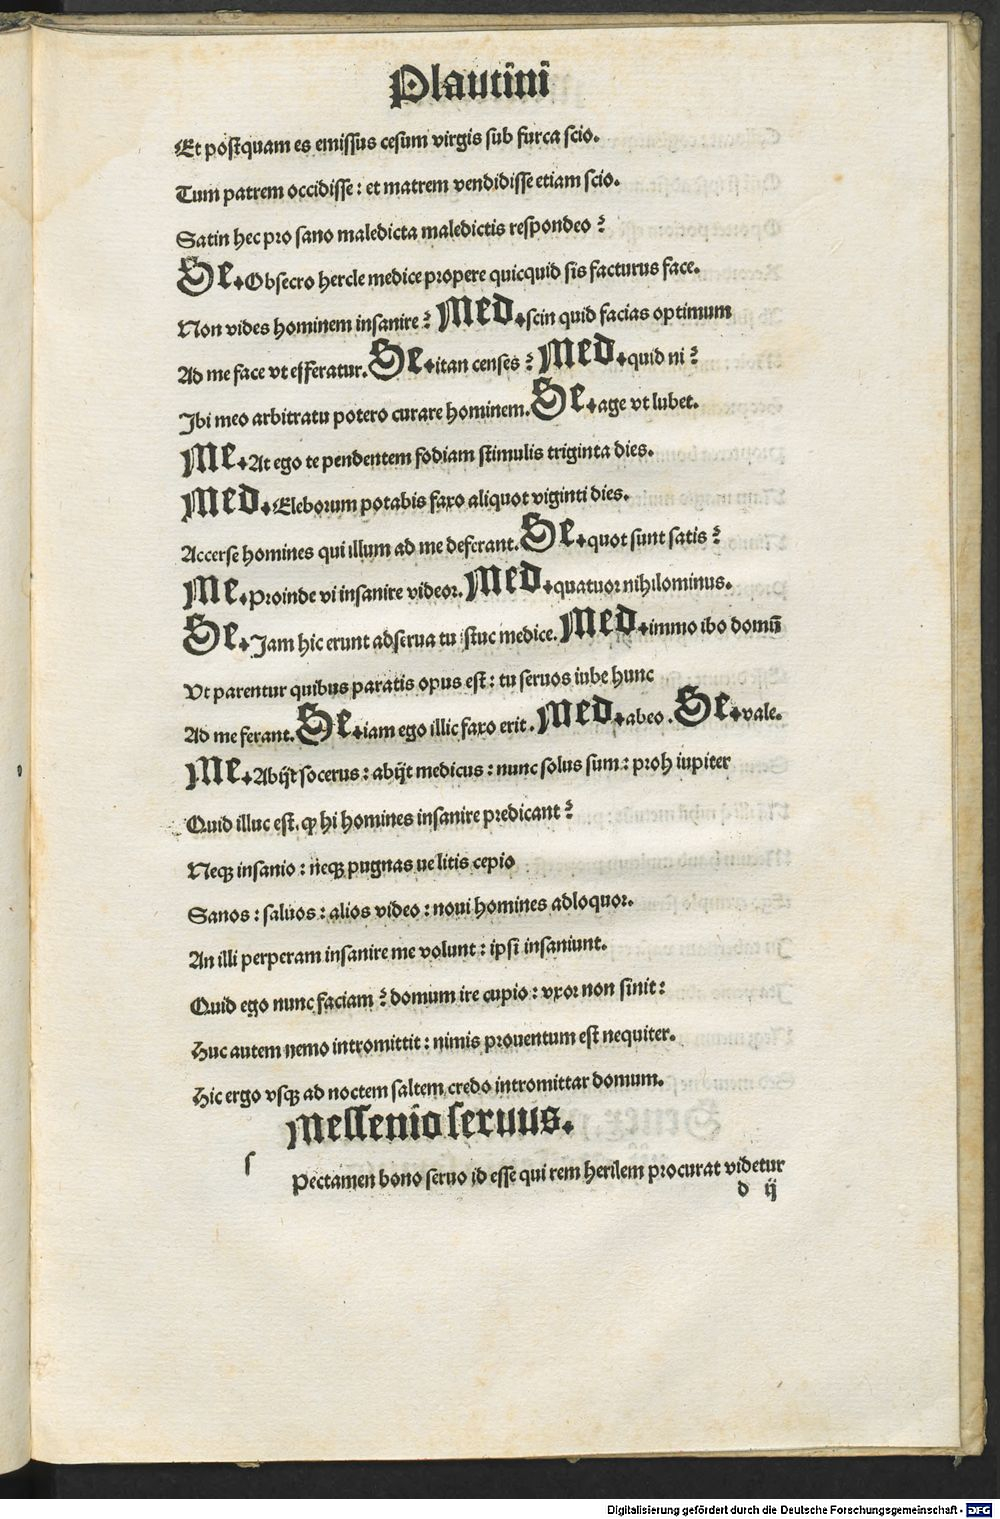 Plautini
Et postquam es emissus cesum virgis sub furca scio.
Tum patrem occidisse : et matrem vendidisse etiam scio.
Satin hec pro sano maledicta maledictis respondeo ?
Se. Obsecro hercle medice propere quicquid sis facturus face.
Non vides hominem insanire ? Med. scin quid facias optimum
Ad me face vt efferatur. Se. itan censes ? Med. quid ni ?
Ibi meo arbitratu potero curare hominem. Se. age vt lubet.
Me. At ego te pendentem fodiam stimulis triginta dies.
Med. Eleborum potabis faxo aliquot viginti dies.
Accerse homines qui illum ad me deferant. Se. quot sunt satis ?
Me. proinde vi insanire videor. Med. quatuor nihilominus.
Se. Iam hic erunt adserua tu istuc medice. Med. immo ibo domū
Vt parentur quibus paratis opus est : tu seruos iube hunc
Ad me ferant. Se. iam ego illic faxo erit. Med. abeo . Se. vale.
Me. Abijt socerus : abijt medicus : nunc solus sum : proh iupiter
Quid illuc est. ꝙ hi homines insanire predicant ?
Neqꝫ insanio : neqꝫ pugnas ue litis cepio
Sanos : saluos : alios video : noui homines adloquor.
An illi perperam insanire me volunt : ipsi insaniunt.
Quid ego nunc faciam ? domum ire cupio : vxor non sinit :
Huc autem nemo intromittit : nimis prouentum est nequiter.
Hic ergo vsqꝫ ad noctem saltem credo intromittar domum.
Messenio seruus.
s Pectamen bono seruo id esse qui rem herilem procurat videtur
d ij
Digitalisierung gefördert durch die Deutsche Forschungsgemeinschaft - DFG